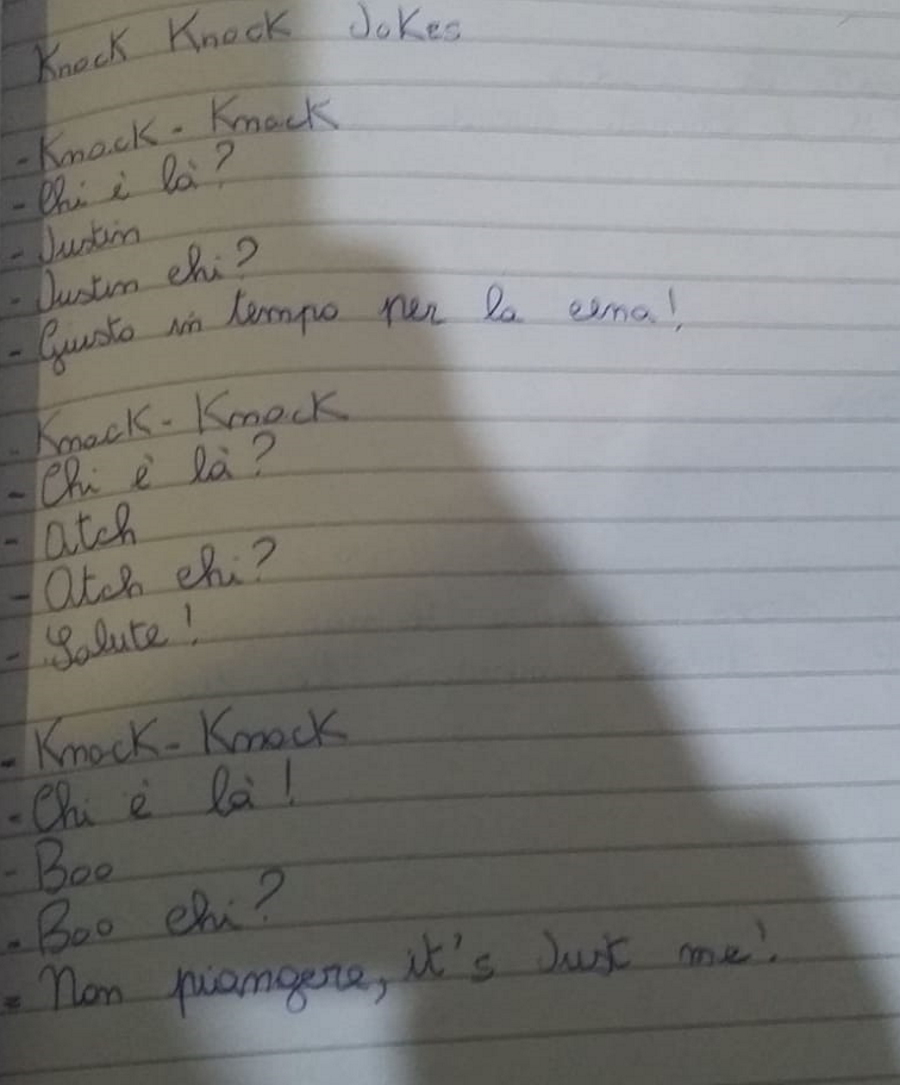 Knock Knock Jokes
- Knock - Knock
- Chi è là?
- Justin
- Justin chi?
- Giusto in tempo per la cena!
- Knock - Knock
- Chi è là?
- Atch
- Atch chi?
- Salute!
- Knock - Knock
- Chi è là!
- Boo
- Boo chi?
- Non piangere, it's Just me!